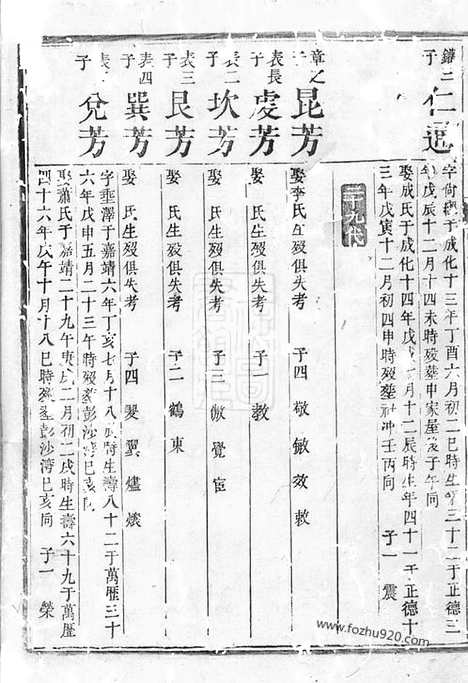 鐥二子
仁迥
字尚
于成化十三年丁酉六月初二巳時生
三十二于正德
年戊辰十二月十四未時歿葬申家屋後子午向
娶成氏于成化十四年戊戌
月十二辰時生年四十一于正德十
三年戊寅十二月初四申時歿葬社冲壬丙向
子一
震
三十九代
章之子
昆芳
娶李氏生歿俱失考
子四
敬敏效敕
表長子
虔芳
娶
氏生歿俱失考
子一
教
表二子
坎芳
娶
氏生歿俱失考
子三
傲覺宦
表三子
艮芳
娶
氏生歿俱失考
子二
鶴東
表四子
巽芳
娶
氏生歿俱失考
子四
爕翼爐爔
表
子
兌芳
字垂澤于嘉靖六年丁亥七月十八
時生壽八十二于萬歷三十
六年戊申五月二十三午時歿葬彭沙灣巳亥向
娶蕭氏于嘉靖二十九年庚戌二月初二戌時生壽六十九于萬歷
四十六年戊午十月十八巳時歿葬彭沙灣巳亥向
子一
榮
www.fozhu920.com